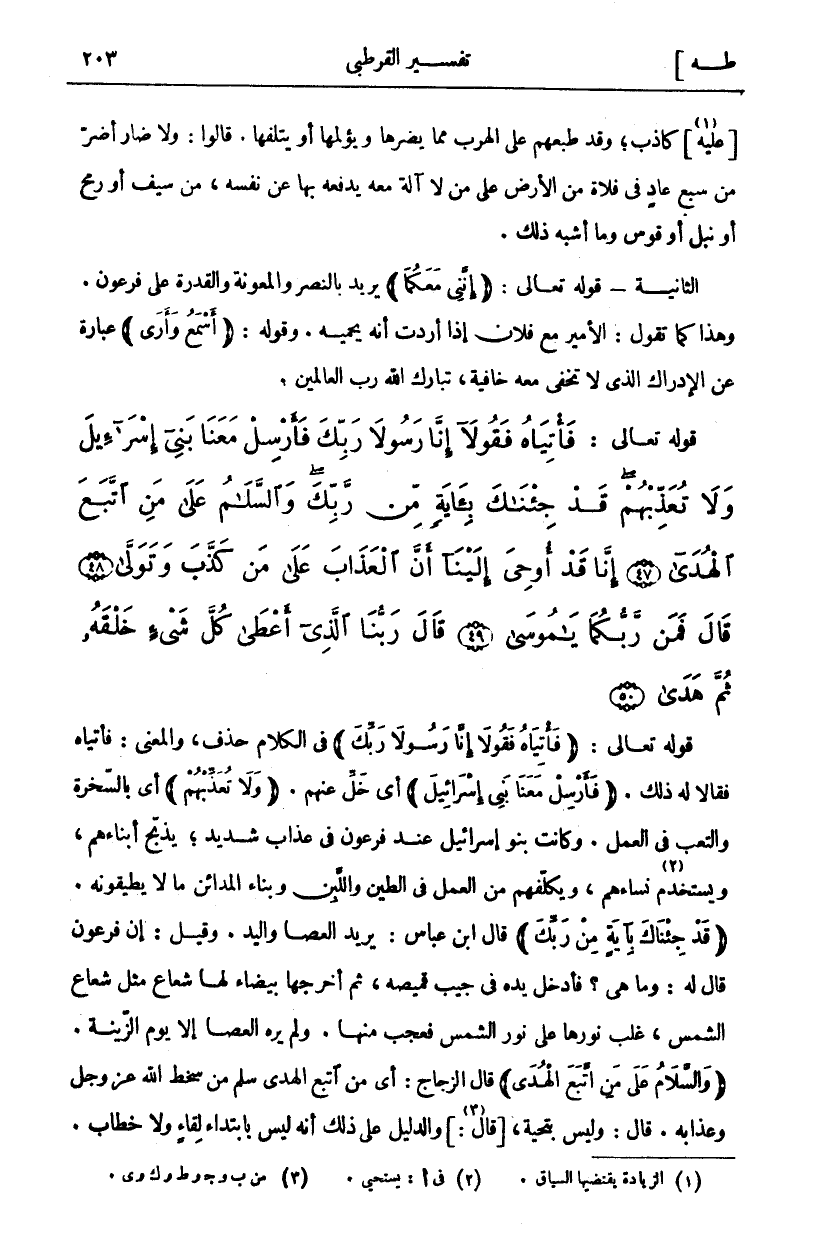 طــه ] تفســير القرطبى ٢٠٣
[عليه](١) كاذب؛ وقد طبعهم على الهرب مما يضرها ويؤلمها أو يتلفها . قالوا : ولا ضار أضرّ
من سبع عادٍ فى فلاة من الأرض على من لا آلة معه يدفعه بها عن نفسه ، من سيف أو رمح
أو نبل أو قوس وما أشبه ذلك .
الثانيــة – قوله تعـالى : ﴿ إِنَّنِي مَعَكُمَا ﴾ يريد بالنصر والمعونة والقدرة على فرعون .
وهذا كما تقول : الأمير مع فلان إذا أردت أنه يحميه . وقوله : ﴿ أَسْمَعُ وَأَرَى ﴾ عبارة
عن الإدراك الذى لا تخفى معه خافية ، تبارك الله رب العالمين ؛
قوله تعـالى : فَأْتِيَاهُ فَقُولَآ إِنَّا رَسُولَا رَبِّكَ فَأَرْسِلْ مَعَنَا بَنِيٓ إِسْرَٰٓءِيلَ
وَلَا تُعَذِّبْهُمْۖ قَدْ جِئْنَٰكَ بِـَٔايَةٍ مِّن رَّبِّكَۖ وَٱلسَّلَٰمُ عَلَىٰ مَنِ ٱتَّبَعَ
ٱلْهُدَىٰٓ ﴿٤٧﴾ إِنَّا قَدْ أُوحِىَ إِلَيْنَآ أَنَّ ٱلْعَذَابَ عَلَىٰ مَن كَذَّبَ وَتَوَلَّىٰ ﴿٤٨﴾
قَالَ فَمَن رَّبُّكُمَا يَٰمُوسَىٰ ﴿٤٩﴾ قَالَ رَبُّنَا ٱلَّذِىٓ أَعْطَىٰ كُلَّ شَىْءٍ خَلْقَهُۥ
ثُمَّ هَدَىٰ ﴿٥٠﴾
قوله تعـالى : ﴿ فَأْتِيَاهُ فَقُولَا إِنَّا رَسُولَا رَبِّكَ ﴾ فى الكلام حذف ، والمعنى : فأتياه
فقالا له ذلك . ﴿ فَأَرْسِلْ مَعَنَا بَنِي إِسْرَائِيلَ ﴾ أى خَلِّ عنهم . ﴿ وَلَا تُعَذِّبْهُمْ ﴾ أى بالسّخرة
والتعب فى العمل . وكانت بنو إسرائيل عنـد فرعون فى عذاب شـديد ؛ يذبّح أبناءهم ،
ويستخدم(٢) نساءهم ، ويكلّفهم من العمل فى الطين واللَّبِن وبناء المدائن ما لا يطيقونه .
﴿ قَدْ جِئْنَاكَ بِآيَةٍ مِنْ رَبِّكَ ﴾ قال ابن عباس : يريد العصـا واليد . وقيـل : إن فرعون
قال له : وما هى ؟ فأدخل يده فى جيب قميصه ، ثم أخرجها بيضاء لهـا شعاع مثل شعاع
الشمس ، غلب نورها على نور الشمس فعجب منهـا . ولم يره العصـا إلا يوم الزّينـة .
﴿ وَالسَّلَامُ عَلَى مَنِ اتَّبَعَ الْهُدَى ﴾ قال الزجاج : أى من اتبع الهدى سلم من سخط الله عز وجل
وعذابه . قال : وليس بتحية ، [قال :](٣) والدليل على ذلك أنه ليس بابتداء لقاءٍ ولا خطاب .
(١) الزيادة يقتضيها السياق . (٢) فى ا : يستحيى . (٣) من ب و جـ و ط و ك و ى .